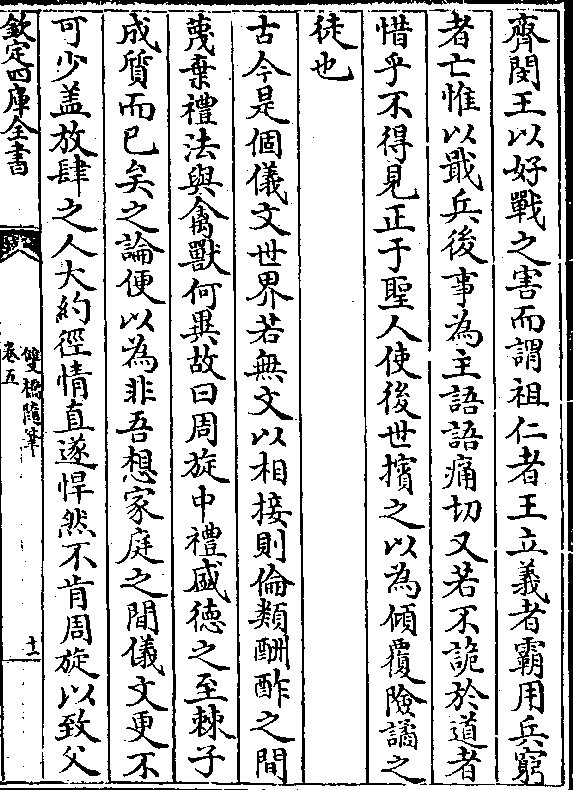 齊閔王以好戰之害而謂祖仁者王立義者霸用兵窮
者亡惟以戢兵後事為主語語痛切又若不詭於道者
惜乎不得見正于聖人使後世擯之以為傾覆險譎之
徒也
古今是個儀文世界若無文以相接則倫類酬酢之間
蔑棄禮法與禽獸何異故曰周旋中禮盛德之至棘子
成質而已矣之論便以為非吾想家庭之間儀文更不
可少盖放肆之人大約徑情直遂悍然不肯周旋以致父
欽定四庫全書
雙橋隨筆
卷五
十二